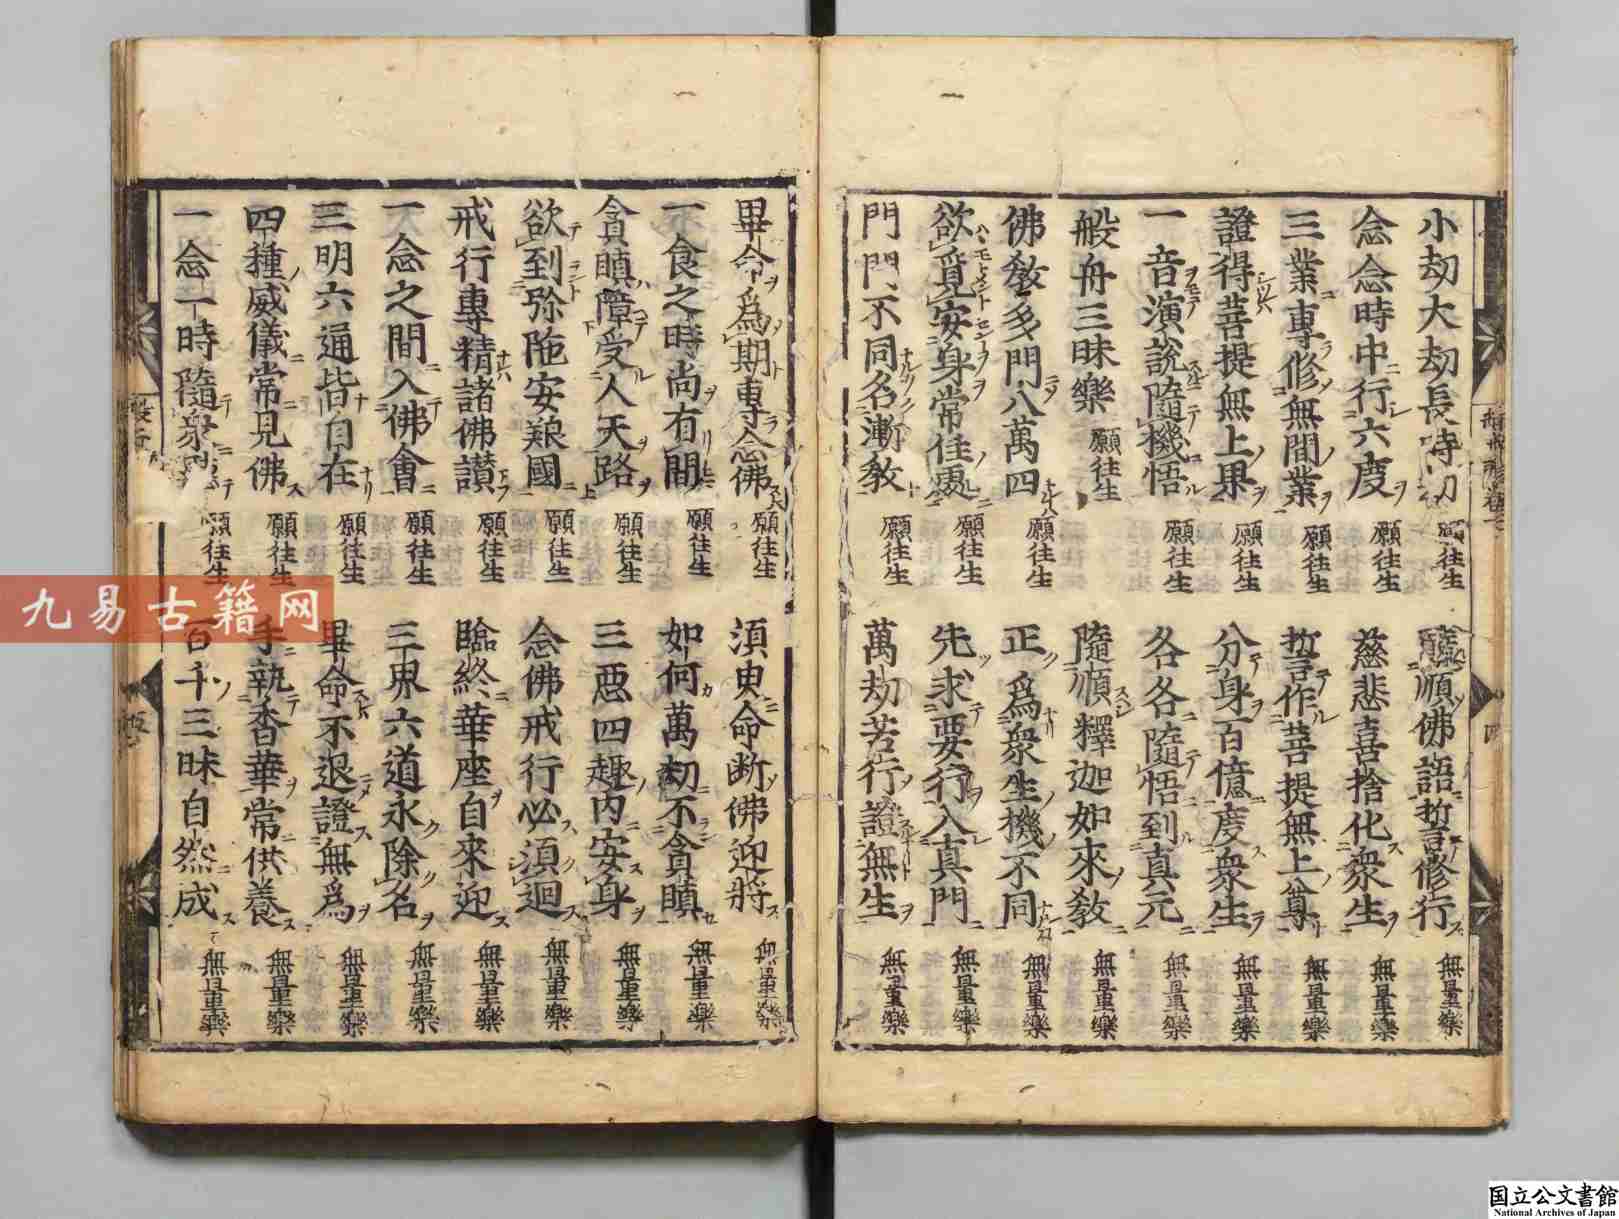 小劫大劫長時劫 願往生 隨順佛語誓修行 無量樂
念念時中行六度 願往生 慈悲喜捨化衆生 無量樂
三業專修無間業 願往生 誓作菩提無上尊 無量樂
證得菩提無上果 願往生 分身百億度衆生 無量樂
一音演說隨機悟 願往生 各各隨悟到真元 無量樂
般舟三昧樂 願往生 隨順釋迦如來教 無量樂
佛教多門八萬四 願往生 正爲衆生機不同 無量樂
欲覓安身常住處 願往生 先求要行入真門 無量樂
門門不同名漸教 願往生 萬劫苦行證無生 無量樂
畢命爲期專念佛 願往生 須臾命断佛迎將 無量樂
一食之時尚有間 願往生 如何萬劫不貪瞋 無量樂
貪瞋障受人天路 願往生 三悪四趣内安身 無量樂
欲到弥陁安養國 願往生 念佛戒行必須迴 無量樂
戒行專精諸佛讃 願往生 臨終華座自來迎 無量樂
一念之間入佛會 願往生 三界六道永除名 無量樂
三明六通皆自在 願往生 畢命不退證無爲 無量樂
四種威儀常見佛 願往生 手執香華常供養 無量樂
一念一時隨衆 願往生 百千三昧自然成 無量樂
四
九易古籍网
国立公文書館
National Archives of Japan